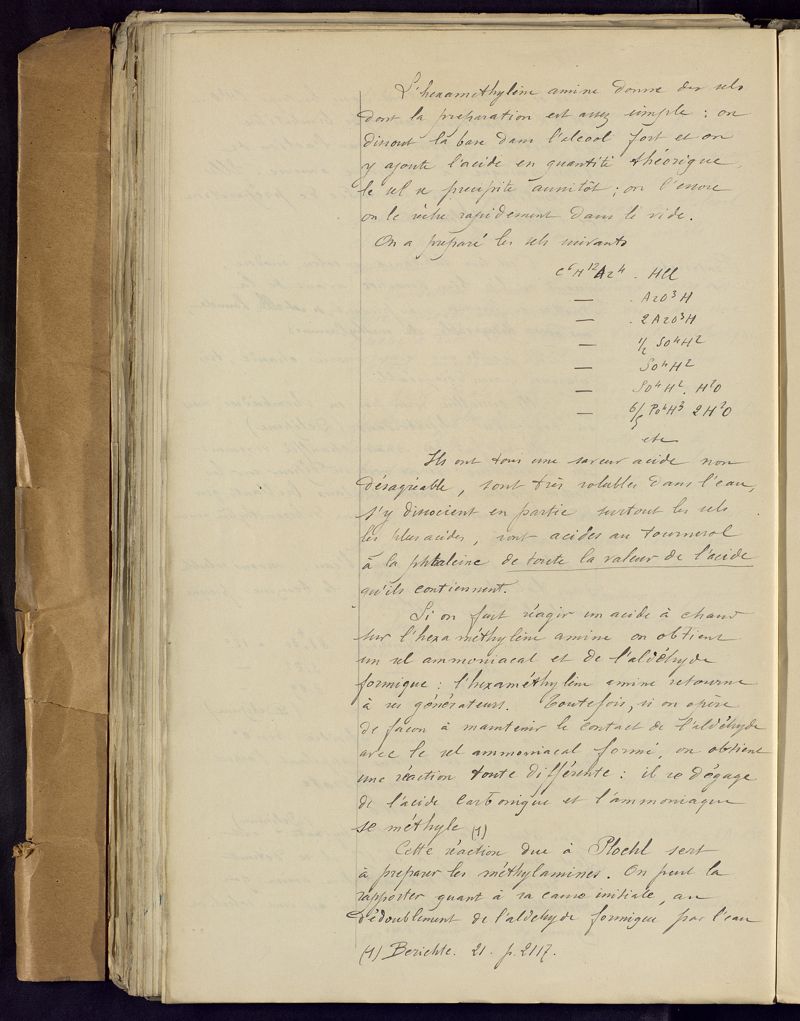 L'hexaméthylène amine donne des sels
dont la préparation est assez simple : on
dissout la base dans l'alcool fort et on
y ajoute l'acide en quantité théorique,
le sel se précipite aussitôt ; on l'essore
on le sèche rapidement dans le vide.
On a préparé les sels suivants
C⁶H¹²Az⁴ . HCl
— . AzO³H
— . 2AzO³H
— 1/2 SO⁴H²
— SO⁴H²
— SO⁴H². H²O
— 6/5 PO⁴H³ 2H²O
etc
Ils ont tous une saveur acide non
désagréable, sont très solubles dans l'eau,
s'y dissocient en partie surtout les sels
les plus acides, sont acides au tournesol
à la phtaleine de toute la valeur de l'acide
qu'ils contiennent.
Si on fait réagir un acide à chaud
sur l'hexaméthylène amine on obtient
un sel ammoniacal et de l'aldéhyde
formique : l'hexaméthylène amine retourne
à ses générateurs. Toutefois, si on opère
de façon à maintenir le contact de l'aldéhyde
avec le sel ammoniacal formé, on obtient
une réaction toute différente : il se dégage
de l'acide carbonique et l'ammoniaque
se méthyle (1)
Cette réaction due à Plochl sert
à préparer les méthylamines. On peut la
rapporter quant à sa cause initiale, au
dédoublement de l'aldehyde formique par l'eau
(1) Berichte. 21. p. 2117.